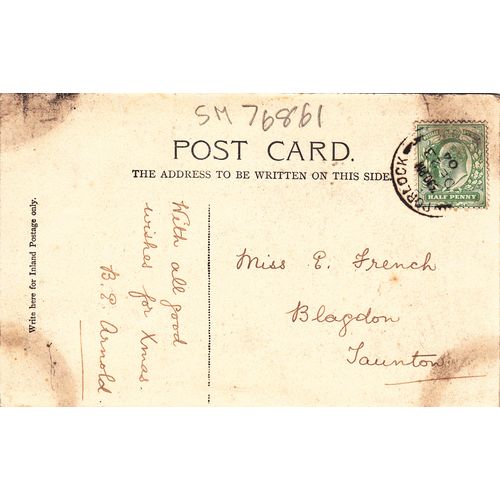 SM 76861
POST CARD.
THE ADDRESS TO BE WRITTEN ON THIS SIDE.
Write here for Inland Postage only.
With all good
wishes for Xmas.
B. E. Arnold.
PORLOCK
HALF PENNY
Miss E. French
Blagdon
Taunton